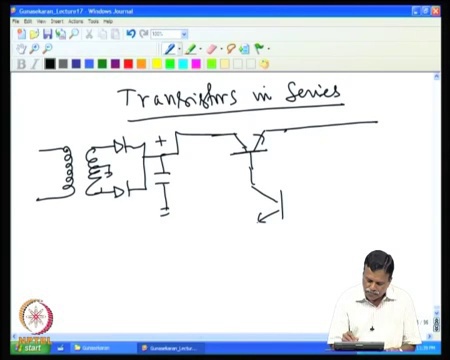 Gunasekaran_Lecture17 - Windows Journal
File Edit View Insert Actions Tools Help
100%
B I
Transistors in Series
+
NPTEL
start
Gunasekaran
Gunasekaran_Lectur...